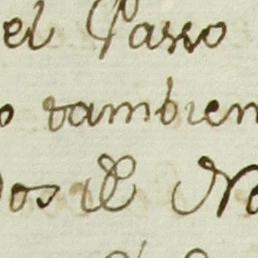 el Passo
o tambien
dos de No